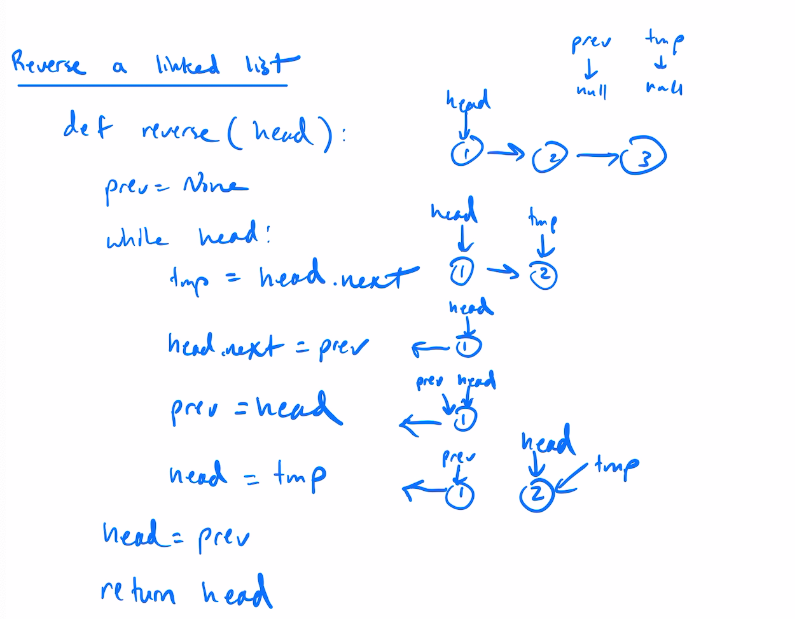 prev tmp
null null
Reverse a linked list
head
def reverse(head):
1 2 3
prev = None
while head:
head tmp
tmp = head.next
1 2
head
head.next = prev
1
prev head
prev = head
1
prev head tmp
head = tmp
1 2
head = prev
return head